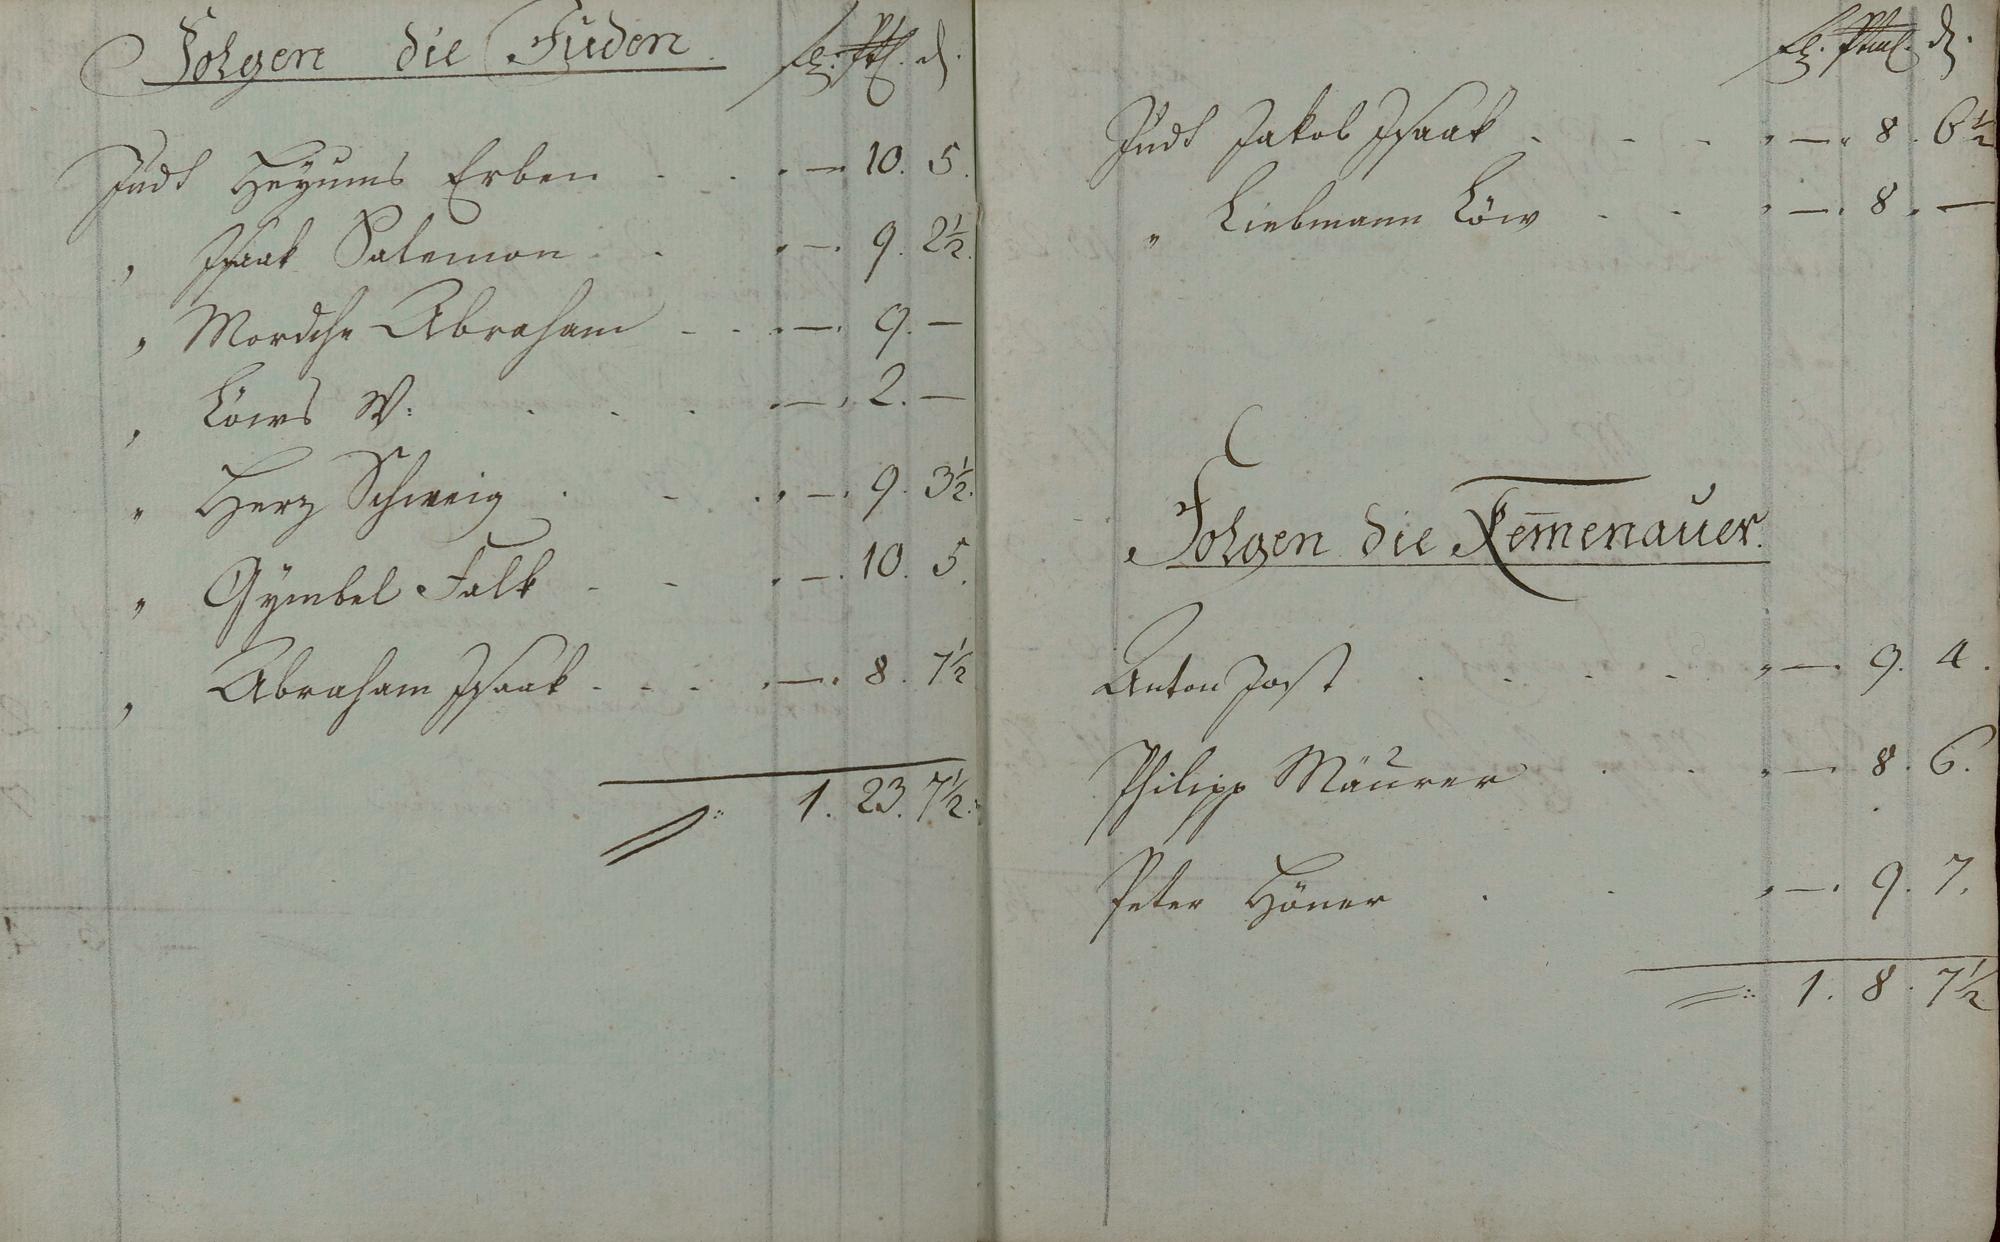 Folgen die Juden.
fl. Ptzl. d.
Judt Heyums Erben . . . — 10. 5.
" Isaak Salemon . . . — . 9. 2½.
" Mordche Abraham - - . — . 9. —
" Löws W: . . . . — . 2. —
" Herz Schweig . - . . — . 9. 3½.
" Gümbel Falk - - . — . 10. 5.
" Abraham Isaak - - . . — . 8. 7½
1. 23. 7½.
fl. Ptzl. d.
Judt Jakob Isaak - - - " — " 8. 6½
" Liebmann Löw - - " — . 8. —
Folgen die Kem̄enauer.
Anton Jost . - - - " — . 9. 4.
Philipp Mäurer . . " — . 8. 6.
Peter Höner . . " — . 9. 7.
1. 8. 7½